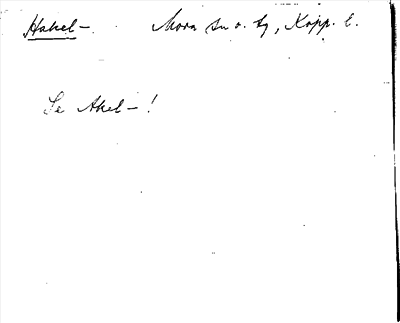 Hakel- Mora sn o. by, Kopp. l.
Se Akel-!